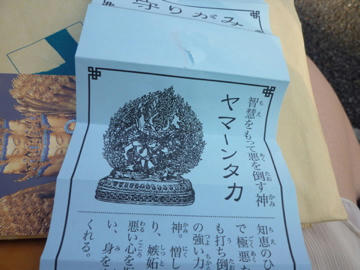 守りがみ
智慧をもって悪を倒す神
ヤマーンタカ
知恵のひ
で極悪な
も打ち倒
の強い力
神。憎し
り、嫉妬
悪い心を
い、身を
くれる。